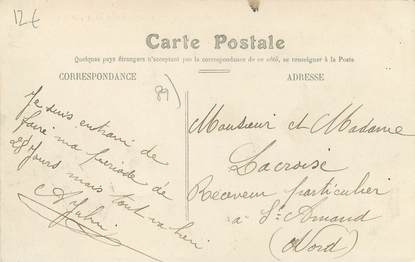 12€
Carte Postale
Quelques pays étrangers n'acceptant pas la correspondance de ce côté, se renseigner à la Poste
CORRESPONDANCE
ADRESSE
89)
Je suis en train de
faire ma periode de
28 Jours mais tout va bien
Monsieur et Madame
Lacroise
Receveur particulier
à St Amand
(Nord)